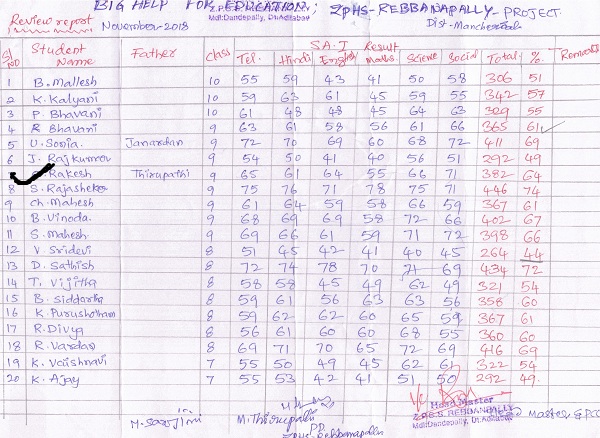 BIG HELP FOR EDUCATION; ZPHS-REBBANAPALLY-PROJECT
Review report November-2018 Mdl:Dandepally, Dt:Adilabad Dist-Mancherial
SA-I Result
Sl NO Student Name Father class Tel. Hindi English Maths Science Social Total % Remarks
1 B. Mallesh 10 55 59 43 41 50 58 306 51
2 K. Kalyani 10 59 63 61 45 59 55 342 57
3 P. Bhavani 10 61 48 48 45 64 63 329 55
4 R Bhavani 9 63 61 58 56 61 66 365 61
5 U. Sonia Janardan 9 72 70 69 60 68 72 411 69
6 J. Rajkumar 9 54 50 41 40 56 51 292 49
Rakesh Thirupathi 9 65 61 64 55 66 71 382 64
8 S. Rajasheker 9 75 76 71 78 75 71 446 74
9 Ch. Mahesh 9 61 64 59 58 66 59 367 61
10 B. Vinoda 9 68 69 69 58 72 66 402 67
11 S. Mahesh 9 69 66 61 59 71 72 398 66
12 V. Sridevi 8 51 45 42 41 40 45 264 44
13 D. Sathish 8 72 74 78 70 71 69 434 72
14 T. Vijitha 8 58 58 45 49 62 49 321 54
15 B. Siddartha 8 59 61 56 63 63 56 358 60
16 K. Purushotham 8 59 62 62 60 65 59 367 61
17 R. Divya 8 56 61 60 60 68 55 360 60
18 R. Vardan 8 69 71 70 65 72 69 416 69
19 K. Vaishnavi 7 55 50 49 45 62 61 322 54
20 K. Ajay 7 55 53 42 41 51 50 292 49
M. Sarojini M. Thirupathi Head Master
Z.P.H.S. REBBANAPALLY
Mdl:Dandepally, Dt:Adilabad